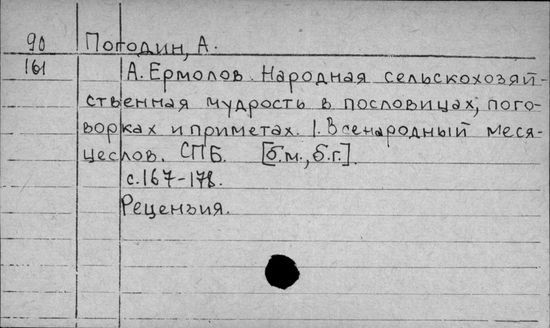 90 Погодин, А.
161 А. Ермолов. Народная сельскохозяй-
ственная мудрость в пословицах, пого-
ворках и приметах. 1. Всенародный меся-
цеслов. СПБ. [б.м., б.г.].
с.167-178.
Рецензия.